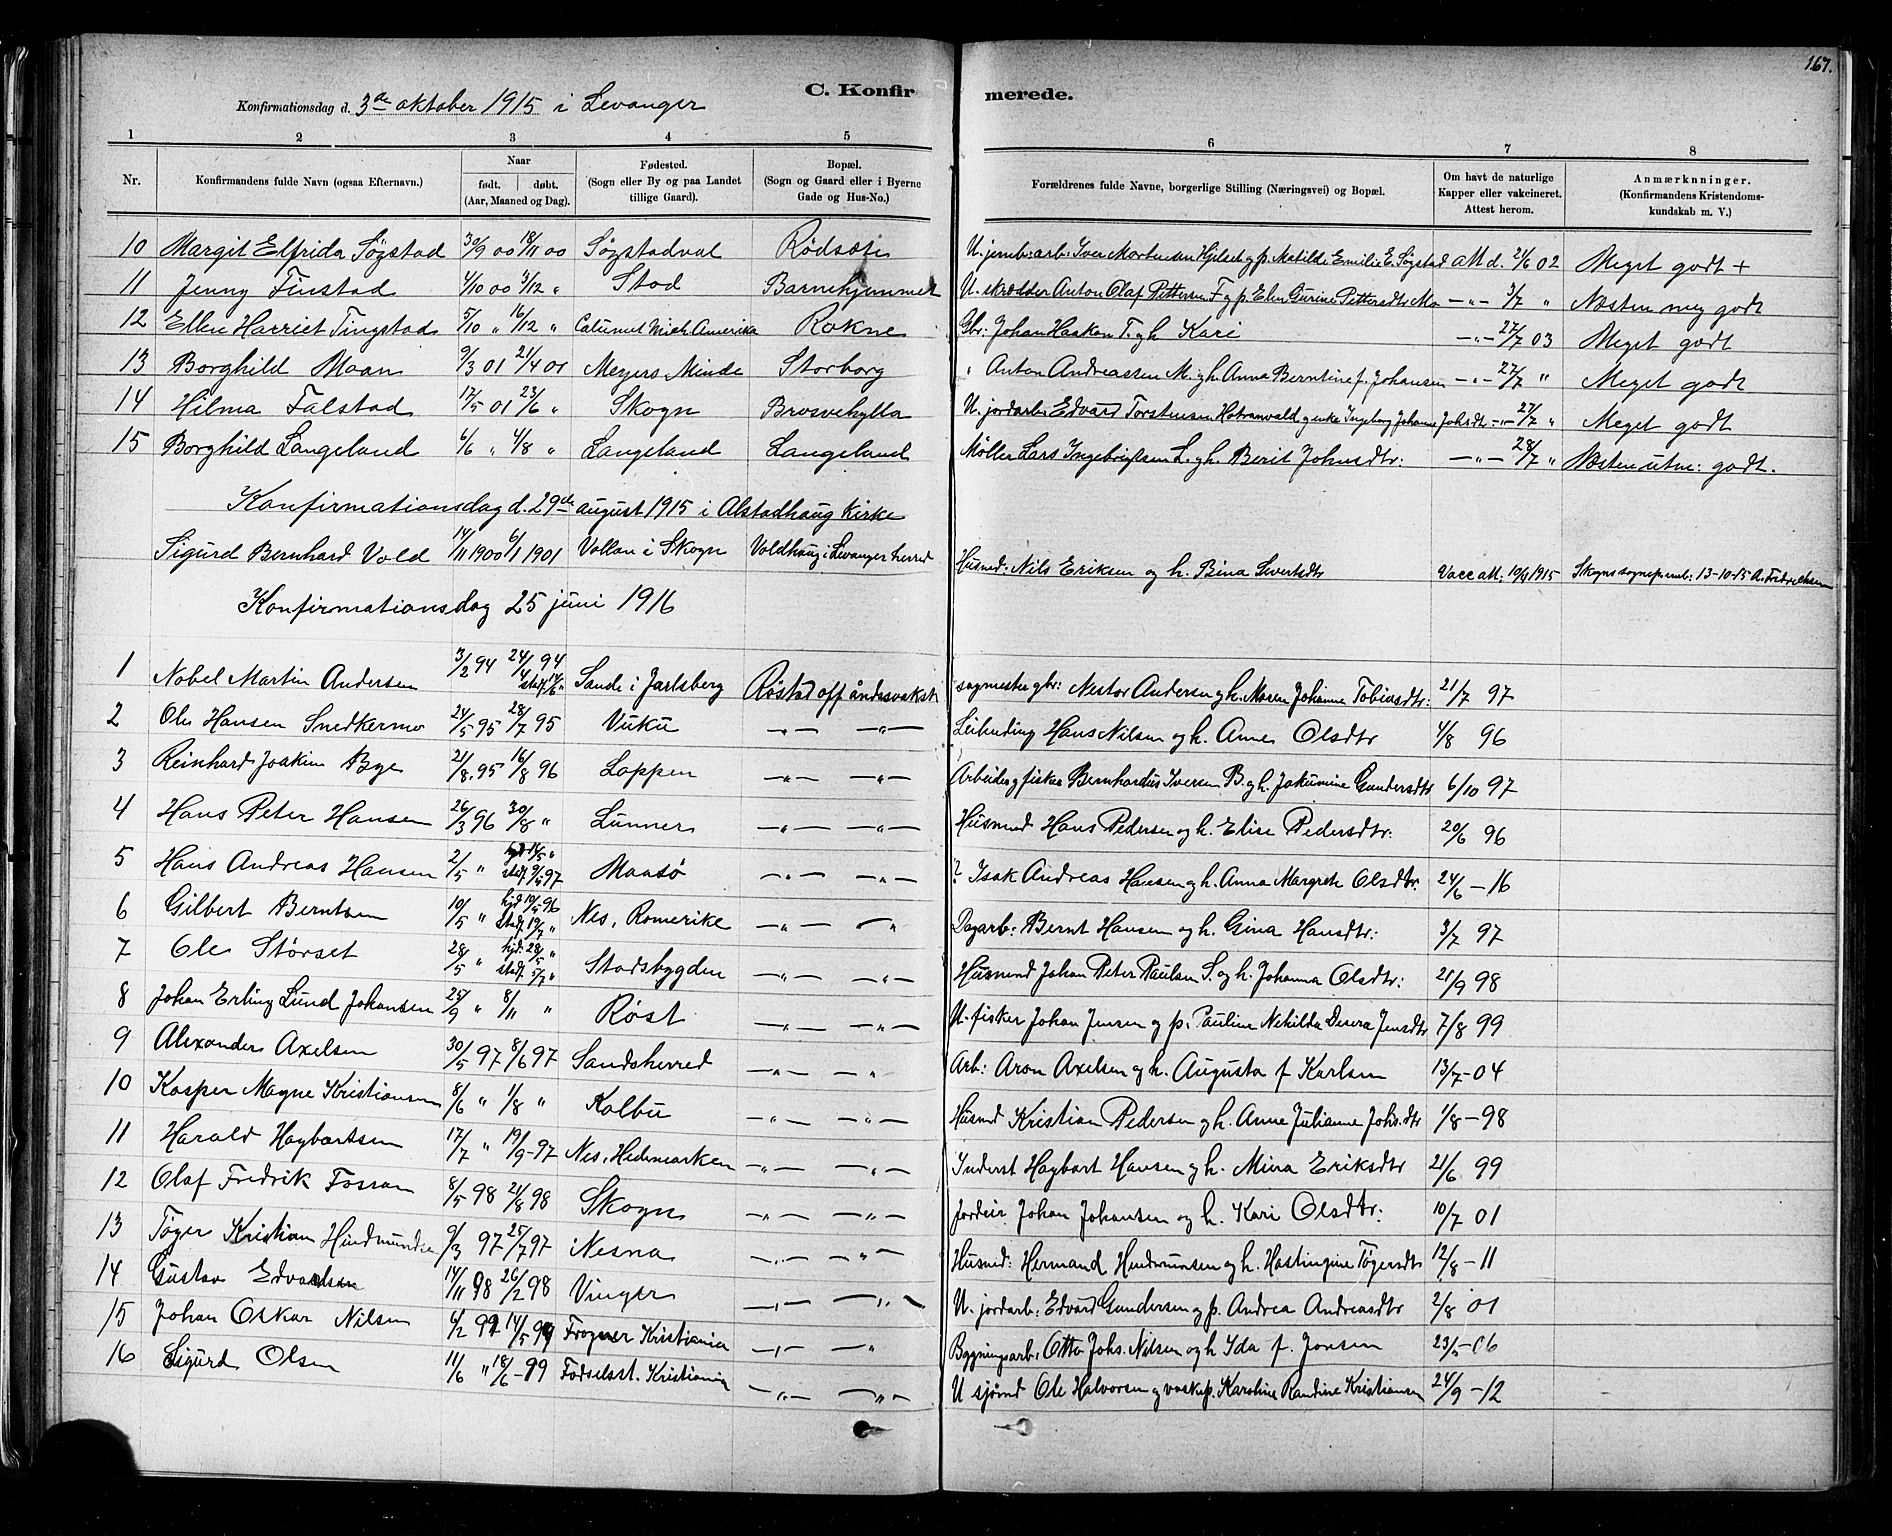 167.
C. Konfirmerede.
Konfirmationsdag d. 3de oktober 1915 i Levanger
1 2 3 4 5 6 7 8
Nr. Konfirmandens fulde Navn (ogsaa Efternavn.) Naar født. døbt. (Aar, Maaned og Dag). Fødested. (Sogn eller By og paa Landet tillige Gaard). Bopæl. (Sogn og Gaard eller i Byerne Gade og Hus-No.) Forældrenes fulde Navne, borgerlige Stilling (Næringsvei) og Bopæl. Om havt de naturlige Kapper eller vakcineret. Attest herom. Anmærknninger. (Konfirmandens Kristendoms-kundskab m. V.)
10 Margit Elfrida Søgstad 30/9 00 18/11 00 Søgstadval Rødsæte U. jernb: arb: Iver Mortensen Hjelset g p. Matilde Emilie E. Søgstad att d. 21/6 02 Meget godt +
11 Jenny Finstad 4/10 00 3/12 " Stod Barnehjemmet U. skrædder Anton Olaf Pettersen F g p Elen Gurine Pettersdtr Mo -"- 3/7 " Næsten meg godt
12 Ellen Harriet Tingstad 5/10 " 16/12 " Calumet Mich. Amerika Rokne Gbr: Johan Haakon T. g h Kari -"- 27/7 03 Meget godt
13 Borghild Moan 9/3 01 21/4 01 Meyers Minde Storborg " Anton Andreassen M. g h. Anna Berntine f. Johansen -"- 27/7 " Meget godt
14 Hilma Falstad 17/5 01 23/6 " Skogn Brusvehylla U. jordarb: Edvard Torstensen Hotranvald g enke Ingeborg Johanne Johsdtr -"- 27/7 " Meget godt
15 Borghild Langeland 6/6 " 4/8 " Langeland Langeland Møller Lars Ingebrigtsen L. g h. Berit Johnsdtr: -"- 28/7 " Næsten utm: godt.
Konfirmationsdag d. 29de august 1915 i Alstadhaug kirke
Sigurd Bernhard Vold 14/11 1900 6/1 1901 Vollan i Skogn Voldhaug i Levanger herred Husmd: Nils Eriksen og h. Bina Sivertsdtr Vacc att: 10/9 1915 Skogns sognepr.emb: 13-10-15
Konfirmationsdag 25 juni 1916
1 Nobel Martin Andersen 3/2 94 24/4 94 stadf. 14/6 " Sande i Jarlsberg Røstad off åndssvaksk sagmester gbr: Nestor Andersen g h. Maren Johanne Tobiasdtr: 21/7 97
2 Ole Hansen Snedkermo 24/5 95 28/7 95 Vuku -"- -"- Leilending Hans Nilsen og h. Anne Olsdtr 4/8 96
3 Reinhard Joakim Bye 21/8. 95 16/8 96 Loppen -"- -"- Arbeider g fisker Bernhardus Iversen B. g h. Jakumine Gundersdtr 6/10 97
4 Hans Peter Hansen 26/3 96 30/8 " Lunner -"- -"- Husmd Hans Pedersen og h. Elise Pedersdtr: 20/6 96
5 Hans Andreas Hansen 2/5 " hjd 14/5 " stadf. 9/5 97 Maasø -"- -"- ? Isak Andreas Hansen g h. Anna Margrete Olsdtr. 24/6 - 16
6 Gilbert Berntsen 10/5 " hjd 10/5 96 Stadf. 19/7 " Nes, Romerike -"- " Dagarb: Bernt Hansen og h. Gina Hansdtr: 3/7 97
7 Ole Størset 28/5 " hjd. 28/5 " stadf. 5/7 " Stadsbygden -"- -"- Husmd Johan Peter Paulsen S. og h. Johanna Olsdtr: 21/9 98
8 Johan Erling Lund Johansen 25/9 " 8/11 " Røst -"- -"- U. fisker Johan Jensen og p. Pauline Nehilda Desera Jensdtr 7/8 99
9 Alexander Axelsen 30/5 97 8/6 97 Sandsherred -"- " Arb: Aron Axelsen og h. Augusta f Karlsen 13/7 - 04
10 Kasper Magne Kristiansen 8/6 " 1/8 " Kolbu -"- -"- Husmd Kristian Pedersen og h. Anne Julianne Johs.dtr 1/8 - 98
11 Harald Hagbartsen 17/7 " 19/9 - 97 Nes, Hedemarken -"- -"- Inderst Hagbart Hansen og h. Mina Eriksdtr 21/6 99
12 Olaf Fredrik Fossan 8/5 98 21/8 98 Skogn -"- -"- Jordeir Johan Johansen og h. Kari Olsdtr: 10/7 01
13 Tøger Kristian Hindmundsen 9/3 97 25/7 97 Nesna -"- -"- Husmd: Hermand Hindmunsen og h. Hastingine Tøgersdtr 12/8 - 11
14 Gustav Edvardsen 14/11 98 26/2 98 Vinger -"- -"- U. jordarb: Edvard Gundersen og p. Andrea Andreasdtr 2/8 01
15 Johan Oskar Nilsen 4/2 99 14/5 99 Frogner Kristiania -"- " Bygningsarb: Otto Johs. Nilsen og h Ida f. Jonsen 23/5 - 06
16 Sigurd Olsen 11/6 " 18/6 - 99 Fødselsst. Kristiania -"- -"- U sjømd Ole Halvorsen g vaskep. Karoline Randine Kristiansen 24/9 - 12